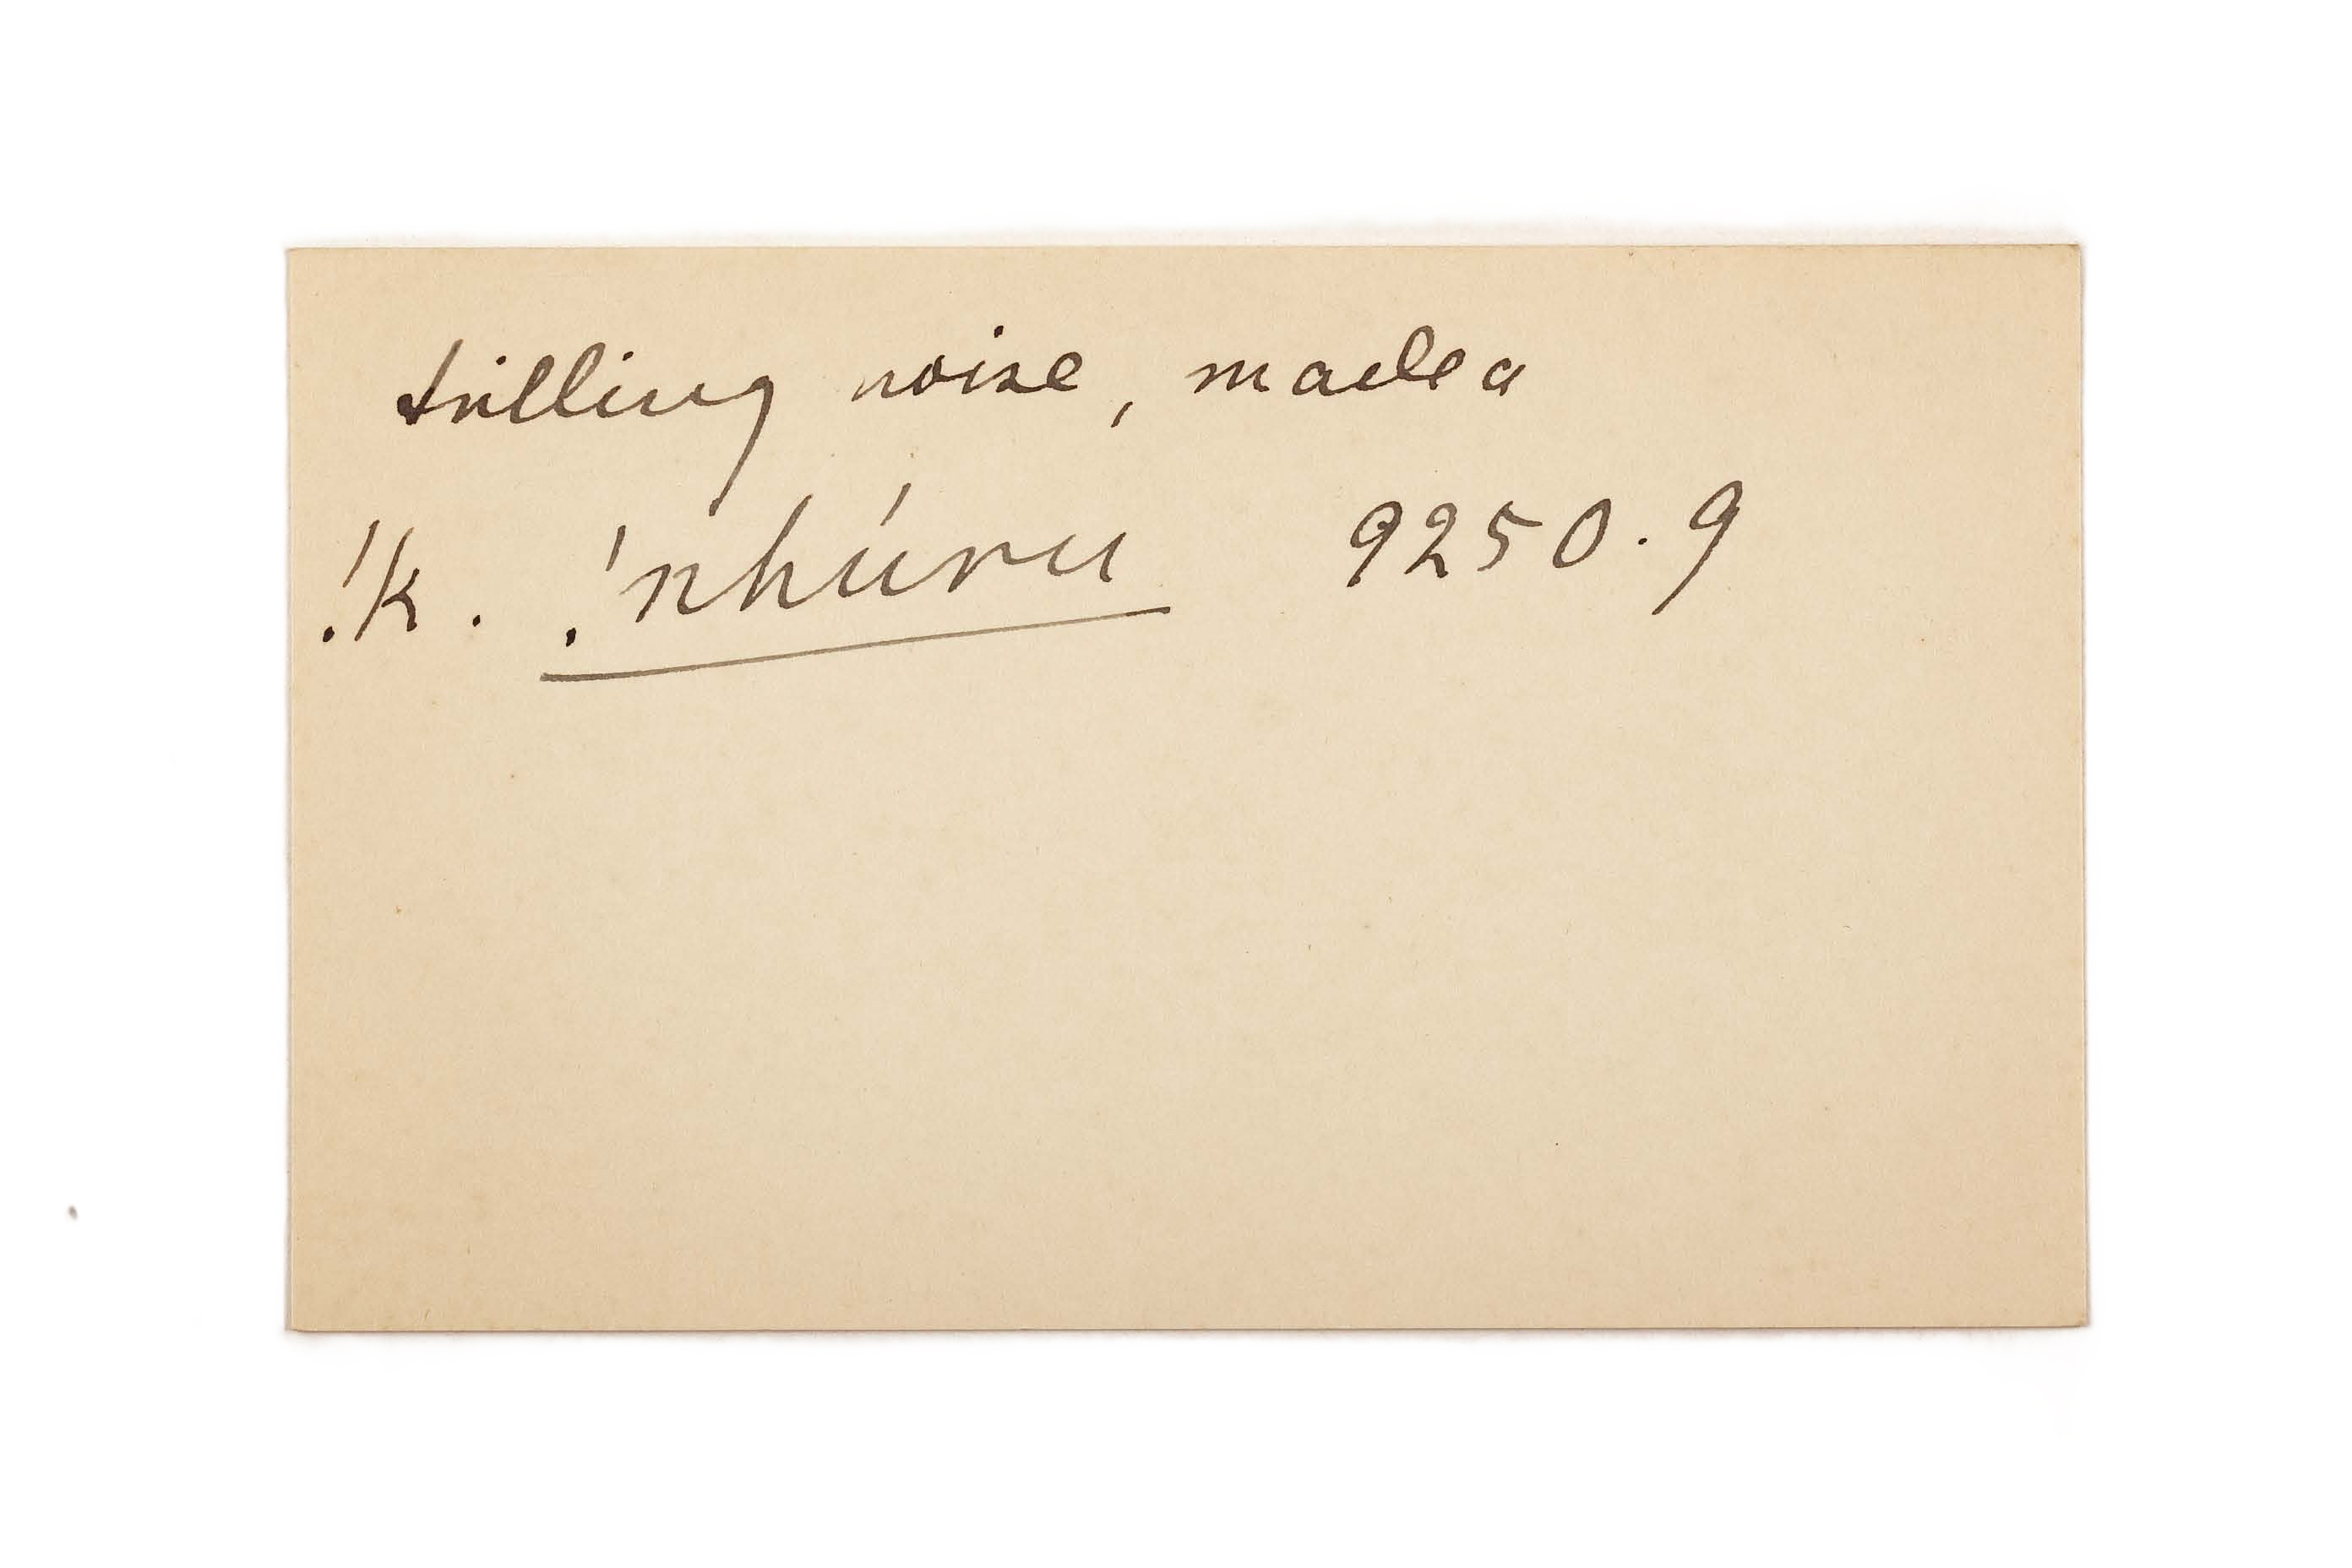 trilling noise, made a
!k. !nhúru 9250.9